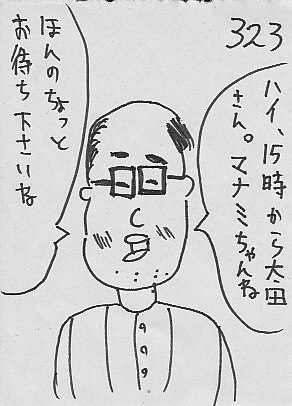 323
ハイ、15時から太田
さん。マナミちゃんね
ほんのちょっと
お待ち下さいね